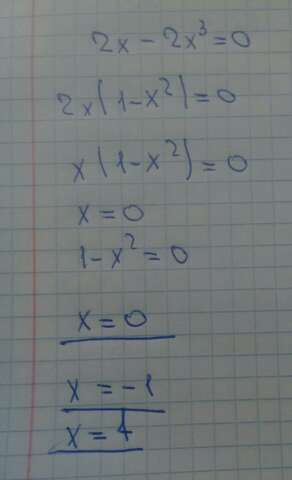 2x - 2x³ = 0
2x(1 - x²) = 0
x(1 - x²) = 0
x = 0
1 - x² = 0
x = 0
x = -1
x = 1